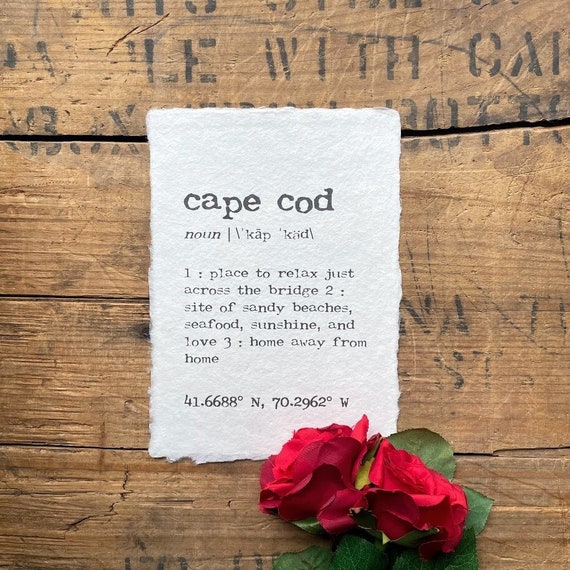 PILE WITH CAR
BOX
BOTTO
cape cod
noun | \ˈkāp ˈkäd\
1 : place to relax just
across the bridge 2 :
site of sandy beaches,
seafood, sunshine, and
love 3 : home away from
home
41.6688° N, 70.2962° W